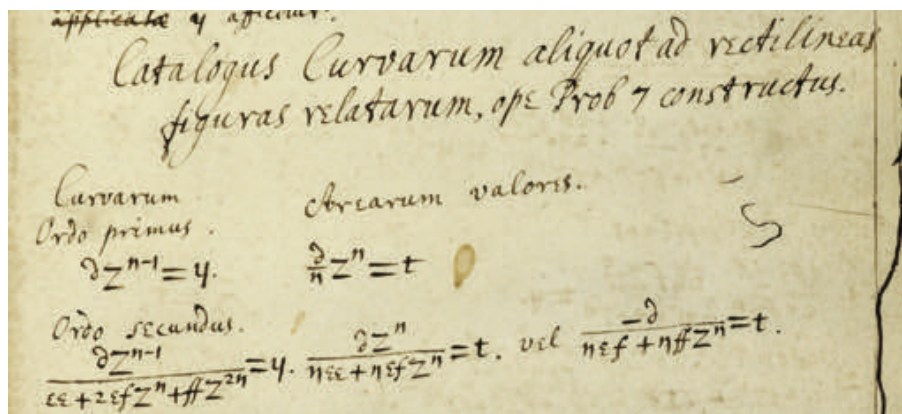 applicatæ y afficitur.
Catalogus Curvarum aliquot ad rectilineas
figuras relatarum, ope Prob 7 constructus.
Curvarum Arearum valores.
Ordo primus.
∂z^{η-1} = y. ∂/η z^η = t
Ordo secundus.
∂z^{η-1}/(εε + 2εfz^η + ffz^{2η}) = y. ∂z^η/(ηεε + ηεfz^η) = t. vel -∂/(ηεf + ηffz^η) = t.